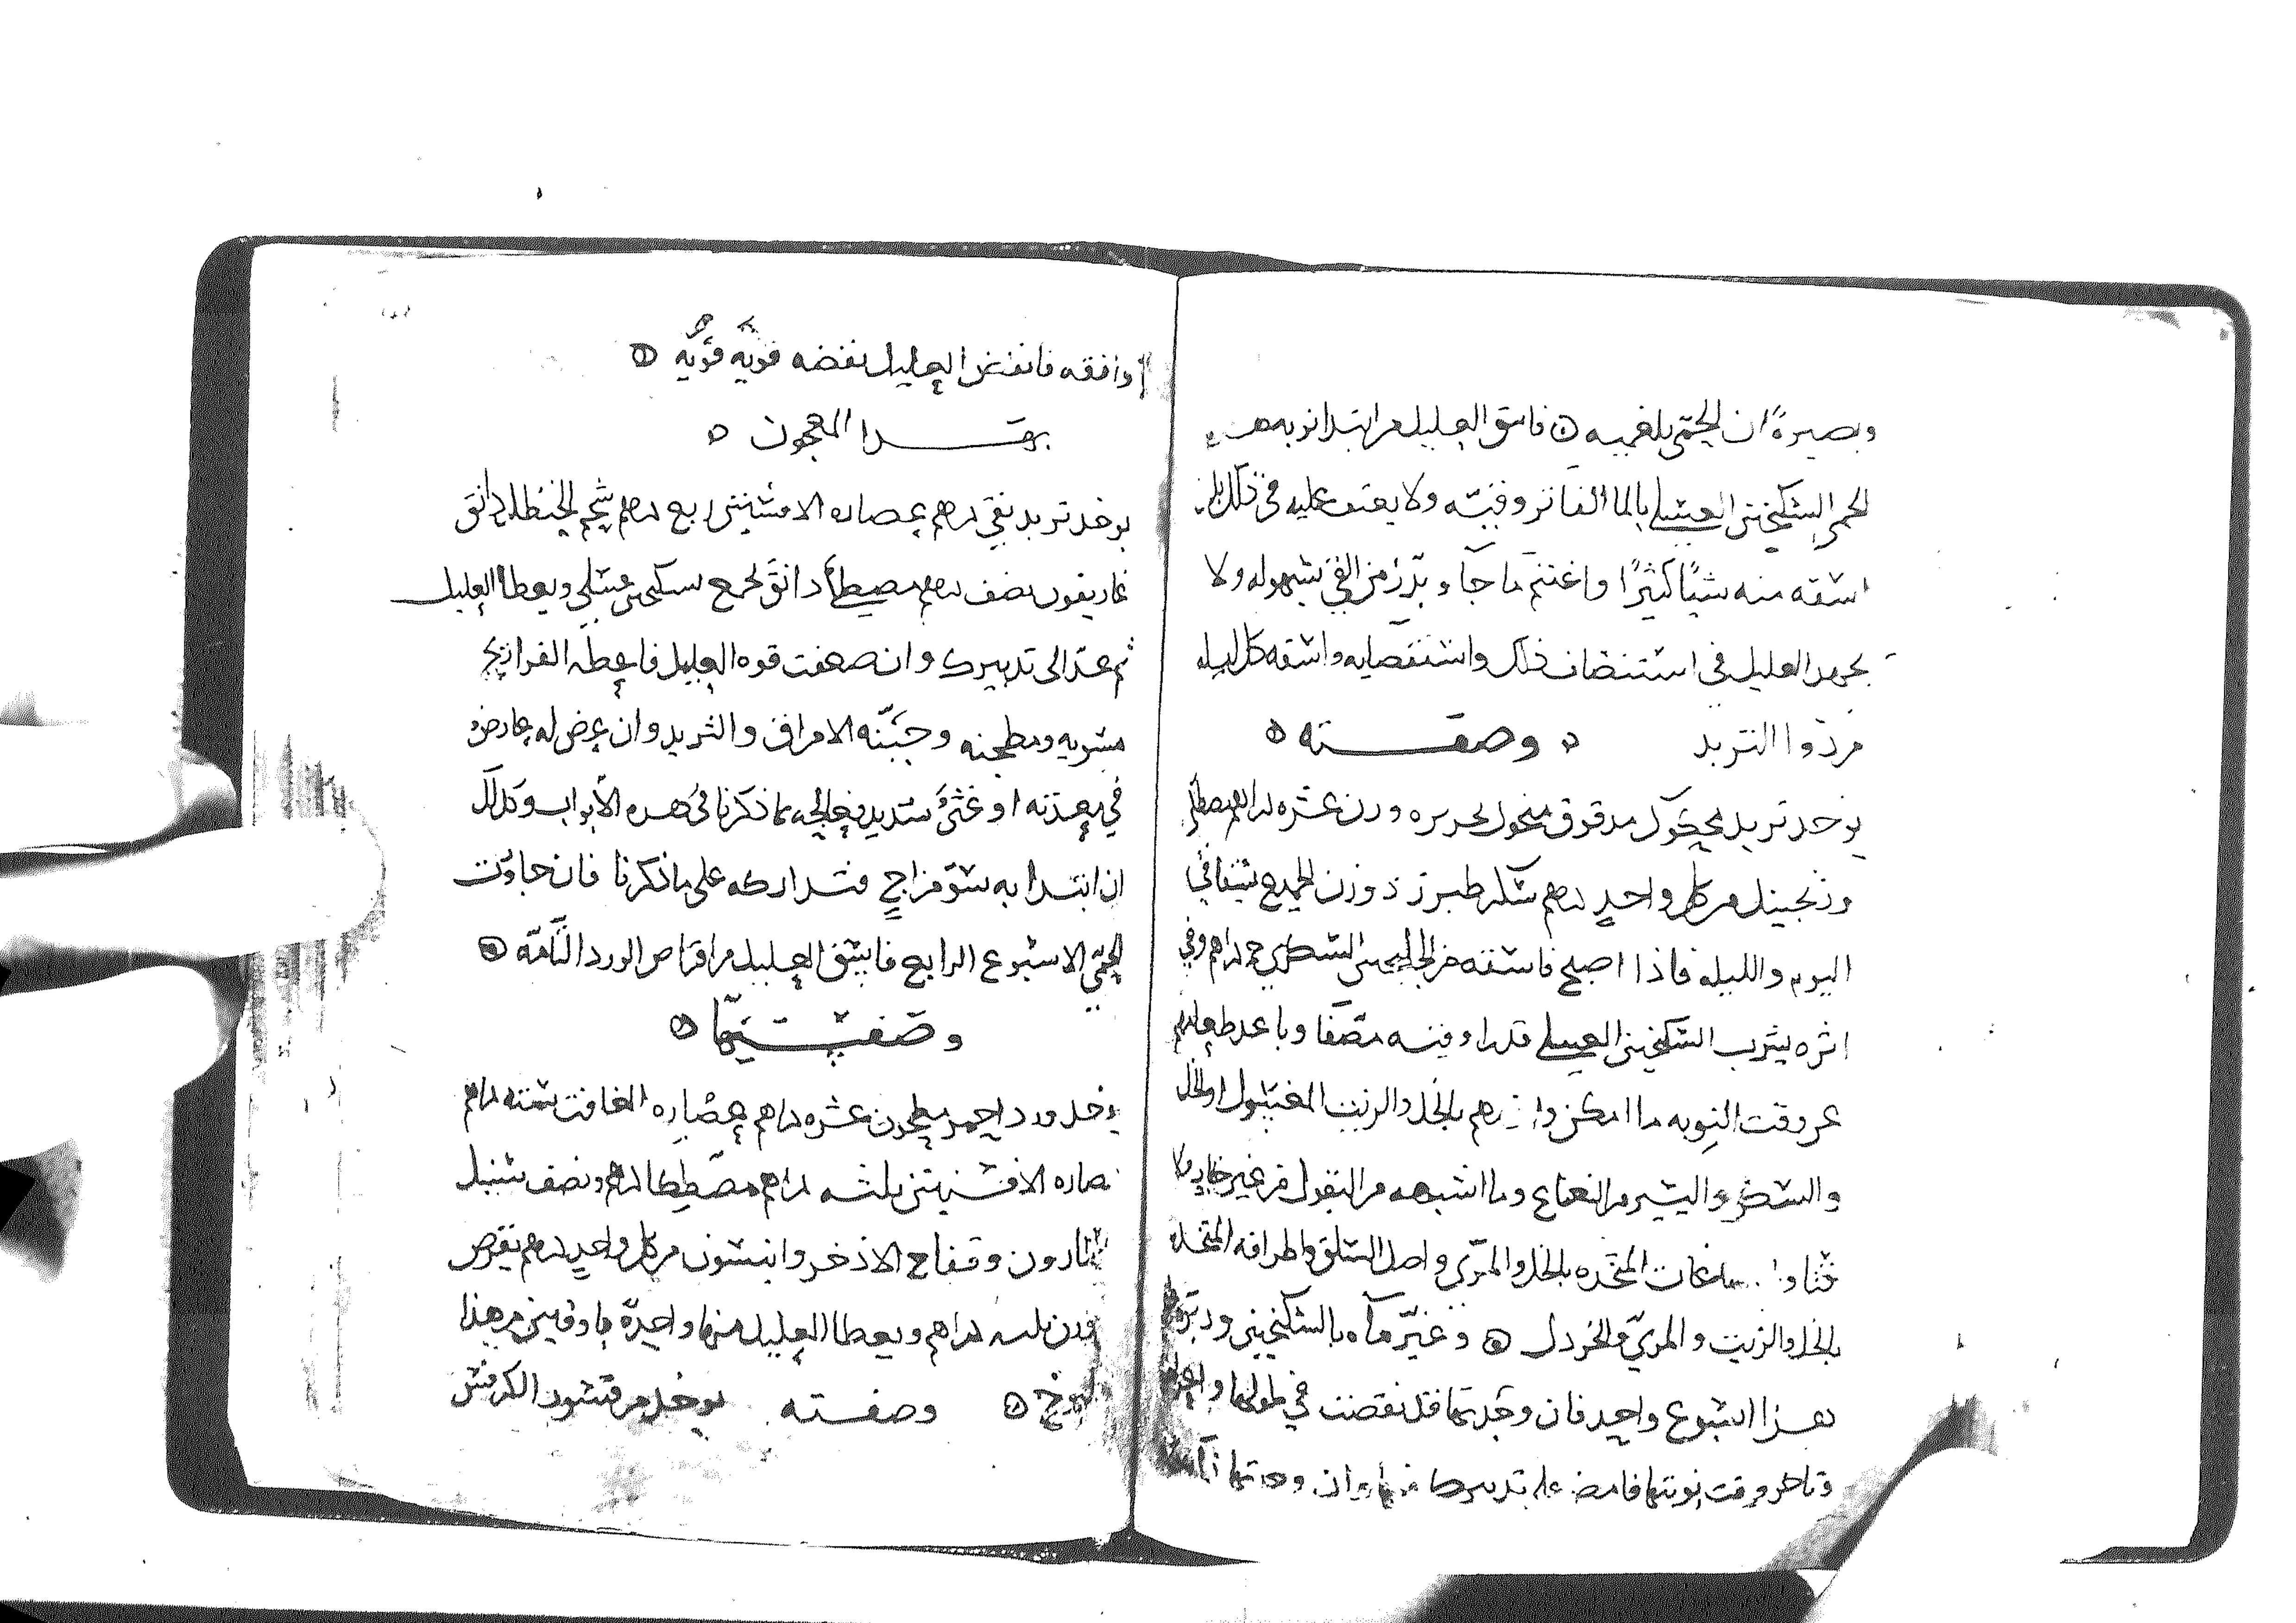 وبصيرة ان الحمى بلغميه ۞ فاسق العليل مر ابتدا نوبه هده
الحمى السكنجبين العسلي بالما الفاتر وقيّه ولا يعنف عليه في ذلك بل
اسقه منه شيًا كثيرًا واغتنم ما جآ وبدر من القي بسهوله ولا
تجهد العليل في استنضاف ذلك واستقصايه واسقه كل ليله
مر دوا التربد ۞ وصفته ۞
يوخد تربد محكوك مدقوق منخول بحريره وزن عشره دراهم مصطكي
وزنجبيل مر كل واحدٍ درهم سكر طبرزد وزن الجميع يستفافي
اليوم والليله فاذا اصبح فاسقه مر الجلنجبين السكري دراهم وفي
اثره يشرب السكنجبين العسلي قدر اوقيه مصفا وباعد طعامهم
عر وقت النوبه ما امكن بالخل والزيت المغسول اوالخل
والسكر واليسير مر النعناع وما اشبهه مر البقول مر غير خيار ولا
قثاوا المتخده بالخل والمرّي واصل السلق واطرافه المتخده
بالخل والزيت والمريّ والخردل ۞ وغيّر مآه بالسكنجبين ودبّرهم
بهدا اسبوع واحد فان وجدتها قد نقصت في طولها و
وتاخر وقت نوبتها فامض على تدبيرك وان
وافقه فانفض العليل نفضه قويه قويّه ۞
بهدا المعجون ۞
يوخد تربد نقي درهم عصاره الافسنتين ربع درهم شحم الحنظل دانق
غاريقون نصف درهم مصطكا دانق يجمع بسكنجبين عسلي ويعطا العليل
ثم عد الى تدبيرك وان ضعفت قوه العليل فاعطه الفراريج
مشويه ومطجنه وجنّبه الامراق والثريد وان عرض له عارض
في معدته او غثي شديد فعالجه بما ذكرنا في هده الأبواب وكدلك
ان ابتدا به سو مزاجٍ فتداركه على ما ذكرنا فان جاوزت
الحمّى الاسبوع الرابع فاسق العليل مر اقراص الورد التامّه ۞
وصفتها ۞
يوخد ورد احمر مطحون عشره دراهم عصاره الغافت سته دراهم
عصاره الافسنتين ثلثه دراهم مصطكا درهم ونصف سنبل
اسارون وفقاح الاذخر وانيسون مر كل واحدٍ درهم يقرص
وزن ثلثه دراهم ويعطا العليل منها واحدة باوقيتين مر هذا
المطبوخ ۞ وصفته يوخد مر قشور الكرفس